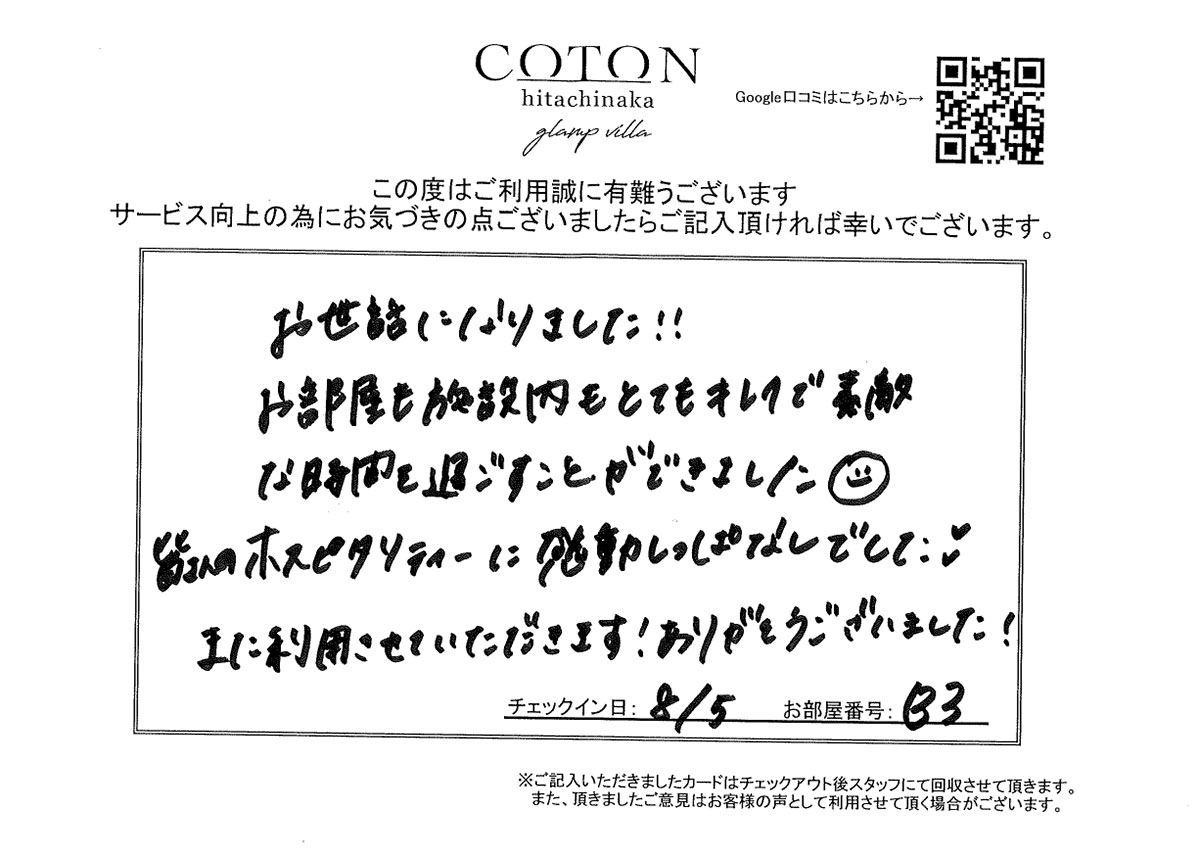 COTON
hitachinaka
glamp villa
Google口コミはこちらから→
この度はご利用誠に有難うございます
サービス向上の為にお気づきの点ございましたらご記入頂ければ幸いでございます。
お世話になりました!!
お部屋も施設内もとてもキレイで素敵
な時間を過ごすことができました
皆さんのホスピタリティーに感動しっぱなしでした
また利用させていただきます!ありがとうございました!
チェックイン日: 8/5 お部屋番号: B3
※ご記入いただきましたカードはチェックアウト後スタッフにて回収させて頂きます。
また、頂きましたご意見はお客様の声として利用させて頂く場合がございます。